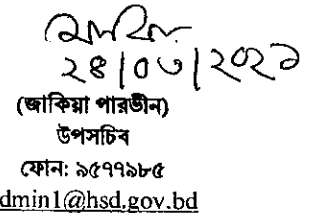 ২৪|০৩|২০২১
(জাকিয়া পারভীন)
উপসচিব
ফোন: ৯৫৭৭৯৮৫
dmin1@hsd.gov.bd